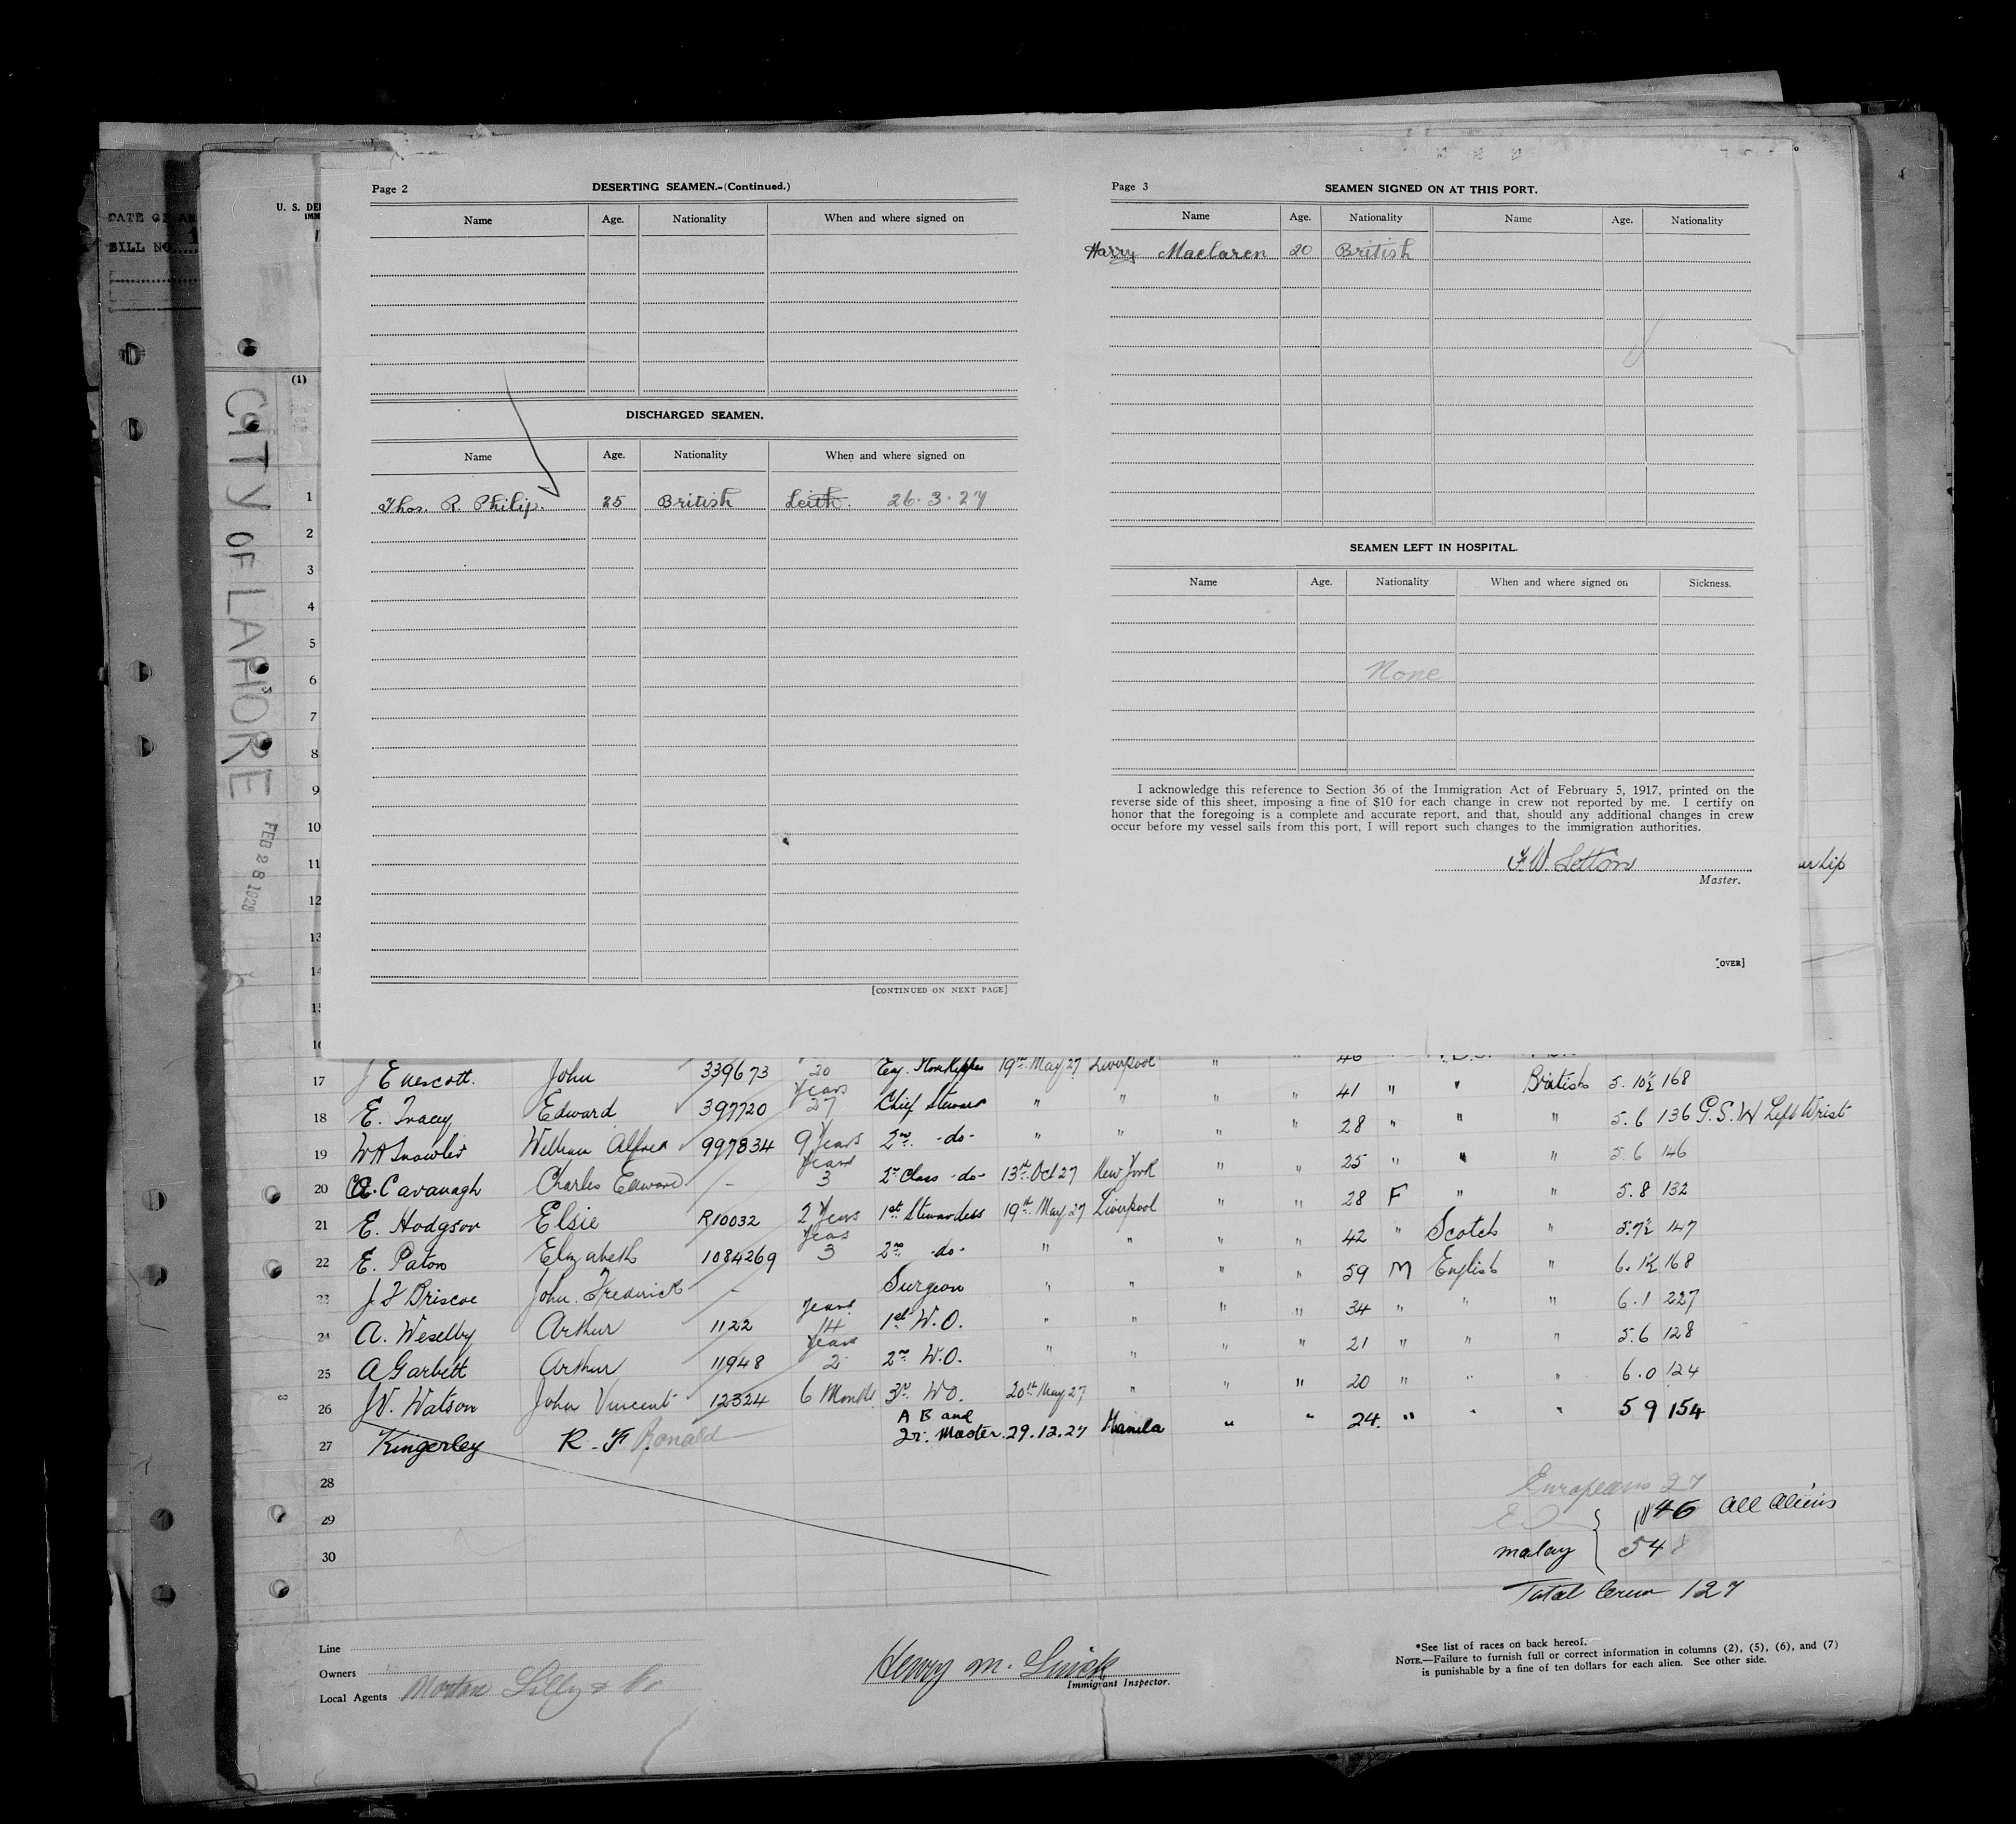 DATE OF AR
BILL NO. 1
U. S. DE
IMM
(1)
CITY OF LAHORE
FEB 28 1928
Page 2
DESERTING SEAMEN.-(Continued.)
Name Age. Nationality When and where signed on
DISCHARGED SEAMEN.
Name Age. Nationality When and where signed on
Thos. R. Philip. 25 British Leith. 26.3.27
[CONTINUED ON NEXT PAGE]
Page 3
SEAMEN SIGNED ON AT THIS PORT.
Name Age. Nationality Name Age. Nationality
Harry Maclaren 20 British
SEAMEN LEFT IN HOSPITAL.
Name Age. Nationality When and where signed on Sickness.
None
I acknowledge this reference to Section 36 of the Immigration Act of February 5, 1917, printed on the
reverse side of this sheet, imposing a fine of $10 for each change in crew not reported by me. I certify on
honor that the foregoing is a complete and accurate report, and that, should any additional changes in crew
occur before my vessel sails from this port, I will report such changes to the immigration authorities.
F. W. Letton
Master.
[OVER]
er Lip
1
2
3
4
5
6
7
8
9
10
11
12
13
14
15
16
17 John 339673 20 Years Eng. Storekeeper 19th May 27 Liverpool " " 46
18 E. Tracey Edward 397720 27 Chief Steward " " " " 41 " " British 5. 10½ 168
19 William Alfred 997834 9 Years 2nd -do- " " " " 28 " " " 5. 6 136 G.S.W Left Wrist
20 C.E. Cavanagh Charles Edward - Years 3 2nd Class -do- 13th Oct 27 New York " " 25 " " " 5 6 146
21 E. Hodgson Elsie R10032 2 Years 1st Stewardess 19th May 27 Liverpool " " 28 F " " 5. 8 132
22 E. Paton Elizabeth 1084269 Years 3 2nd -do- " " " " 42 " Scotch " 5.7½ 147
23 J. F Briscoe John Frederick - Surgeon " " " " 59 M English " 6. 1½ 168
24 A. Weselby Arthur 1122 Years 14 1st W.O. " " " " 34 " " " 6. 1 227
25 A Garbett Arthur 11948 Years 2 2nd W.O. " " " " 21 " " " 5. 6 128
26 J.V. Watson John Vincent 12324 6 Months 3rd W.O. 20th May 27 " " " 20 " " " 6. 0 124
27 Kingerley R. F Ronald A B and Master 29.12.27 Manila " " 24 " " " 5 9 154
28
29
30
Europeans 27
46 All Aliens
malay 54
Total Crew 127
Line
Owners
Local Agents Morton Lilly & Co
Henry M.
Immigrant Inspector.
*See list of races on back hereof.
NOTE.—Failure to furnish full or correct information in columns (2), (5), (6), and (7)
is punishable by a fine of ten dollars for each alien. See other side.